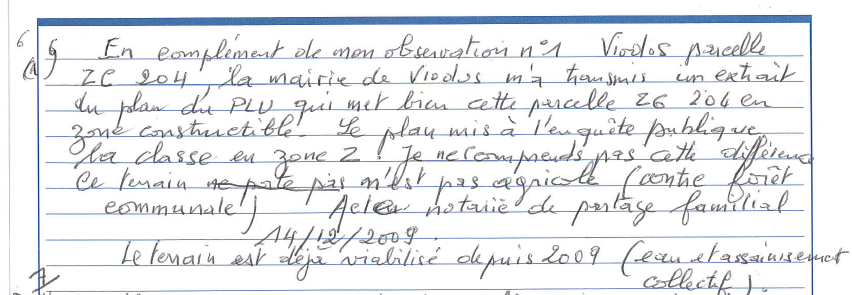 6 9 En complément de mon observation n°1 Viodos parcelle
(A) ZC 204, la mairie de Viodos m'a transmis un extrait
du plan du PLU qui met bien cette parcelle ZC 204 en
zone constructible. Le plan mis à l'enquête publique
la classe en zone Z ! Je ne comprends pas cette différence
Ce terrain ne porte pas n'est pas agricole (contre forêt
communale) Acte notarié de partage familial
14/12/2009.
Le terrain est déjà viabilisé depuis 2009 (eau et assainissement
7 collectif).